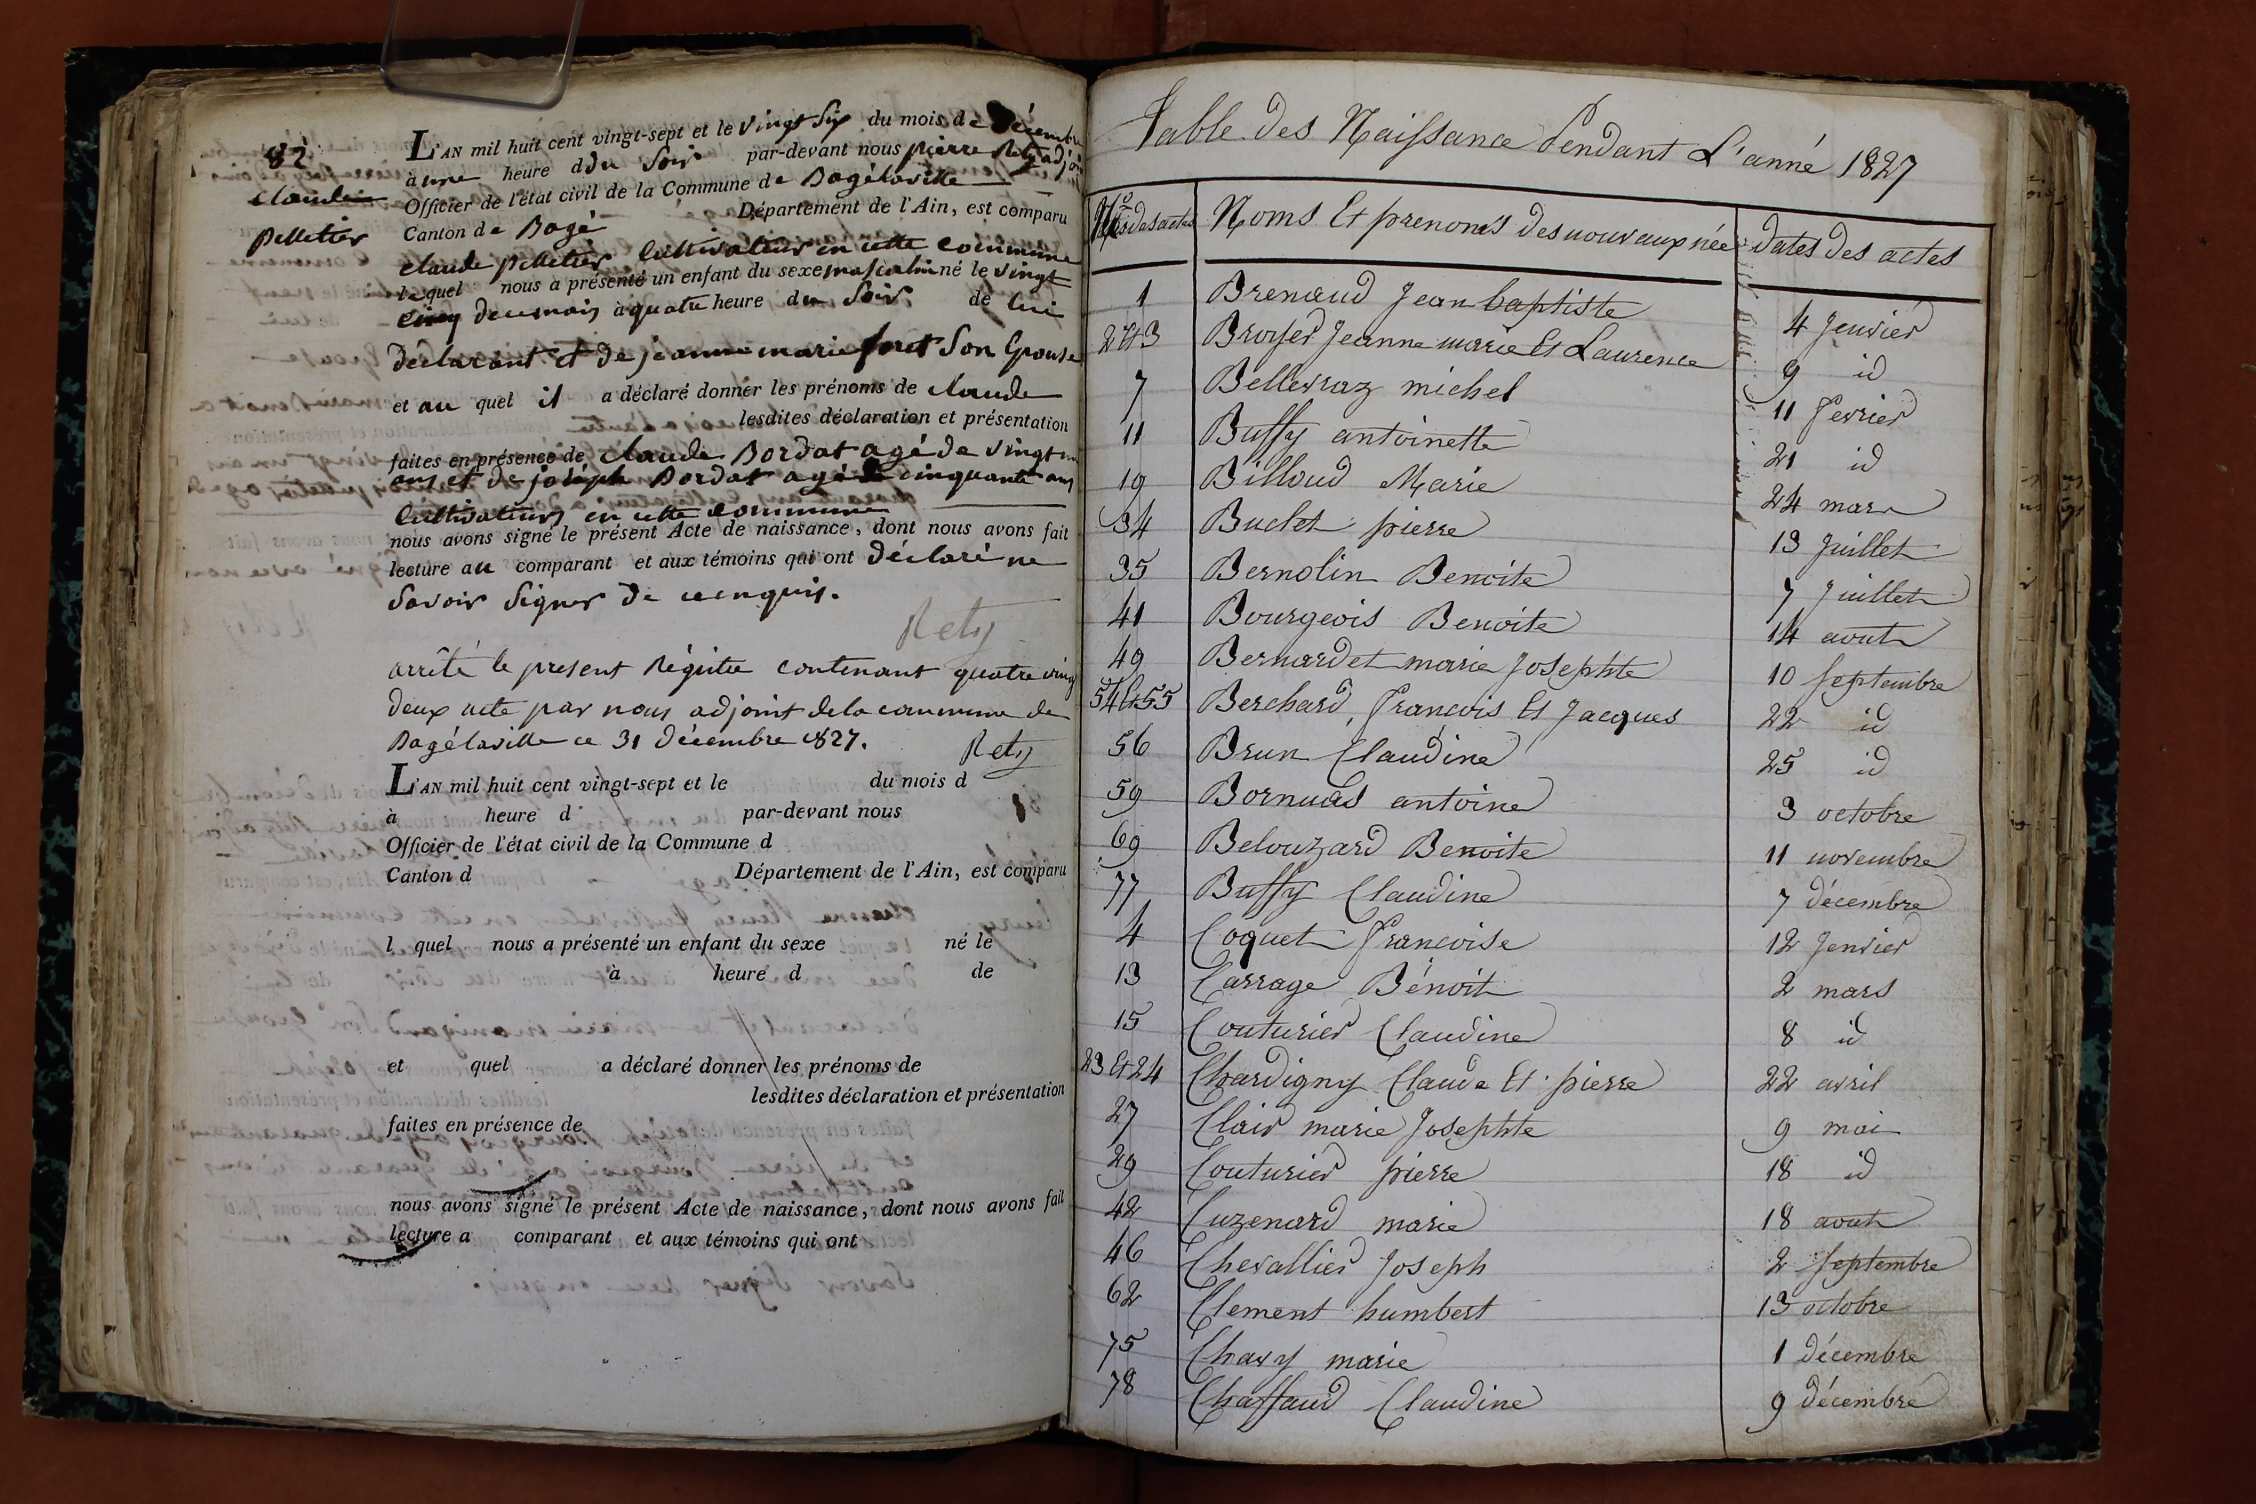 82
claude
pelletier
L'AN mil huit cent vingt-sept et le vingt Six du mois de décembre
à une heure d du Soir par-devant nous pierre Rety adjoint
Officier de l'état civil de la Commune de Bagélaville
Canton de Bagé Département de l'Ain, est comparu
claude pelletier Cultivateur en cette commune
lequel nous a présenté un enfant du sexe masculin né le vingt
Cinq du mois à quatre heure du Soir de lui
déclarant et de jeanne marie foret Son Epouse
et au quel il a déclaré donner les prénoms de claude
lesdites déclaration et présentation
faites en présence de claude Bordat agé de vingt
ans et de joséph Bordat agé de cinquante ans
Cultivateurs en cette commune
nous avons signé le présent Acte de naissance, dont nous avons fait
lecture au comparant et aux témoins qui ont déclaré ne
Savoir Signer de ce enquis.
Rety
arrêté le present Régistre contenant quatre vingt
deux acte par nous adjoint de la commune de
Bagélaville ce 31 décembre 1827.
Rety
L'AN mil huit cent vingt-sept et le du mois d
à heure d par-devant nous
Officier de l'état civil de la Commune d
Canton d Département de l'Ain, est comparu
l quel nous a présenté un enfant du sexe né le
à heure d de
et quel a déclaré donner les prénoms de
lesdites déclaration et présentation
faites en présence de
nous avons signé le présent Acte de naissance, dont nous avons fait
lecture a comparant et aux témoins qui ont
Table des Naissance Pendant L'anné 1827
Nos des actes Noms Et prenoms des nouveaux née dates des actes
1 Brenaud Jean baptiste 4 Jenvier
2 et 3 Broyer Jeanne marie Et Laurence 9 id
7 Bellevraz michel 11 fevrier
11 Buffy antoinette 21 id
19 Billoud Marie 24 mars
34 Buclet pierre 13 Juillet
35 Bernolin Benoite 7 Juillet
41 Bourgeois Benoite 14 aout
49 Bernardet marie Josephte 10 septembre
54 Et 55 Berchard, françois Et Jacques 22 id
56 Brun Claudine 25 id
59 Bornuas antoine 3 octobre
69 Belouzard Benoite 11 novembre
77 Buffy Claudine 7 décembre
4 Coquet francoise 12 Jenvier
13 Carrage Bénoit 2 mars
15 Couturier Claudine 8 id
23 Et 24 Chardigny Claude Et pierre 22 avril
27 Clair marie Josephte 9 mai
29 Couturier pierre 18 id
42 Cuzenard marie 18 aout
46 Chevallier Joseph 2 septembre
62 Clement humbert 13 octobre
75 Chavy marie 1 décembre
78 Chaffaud Claudine 9 décembre